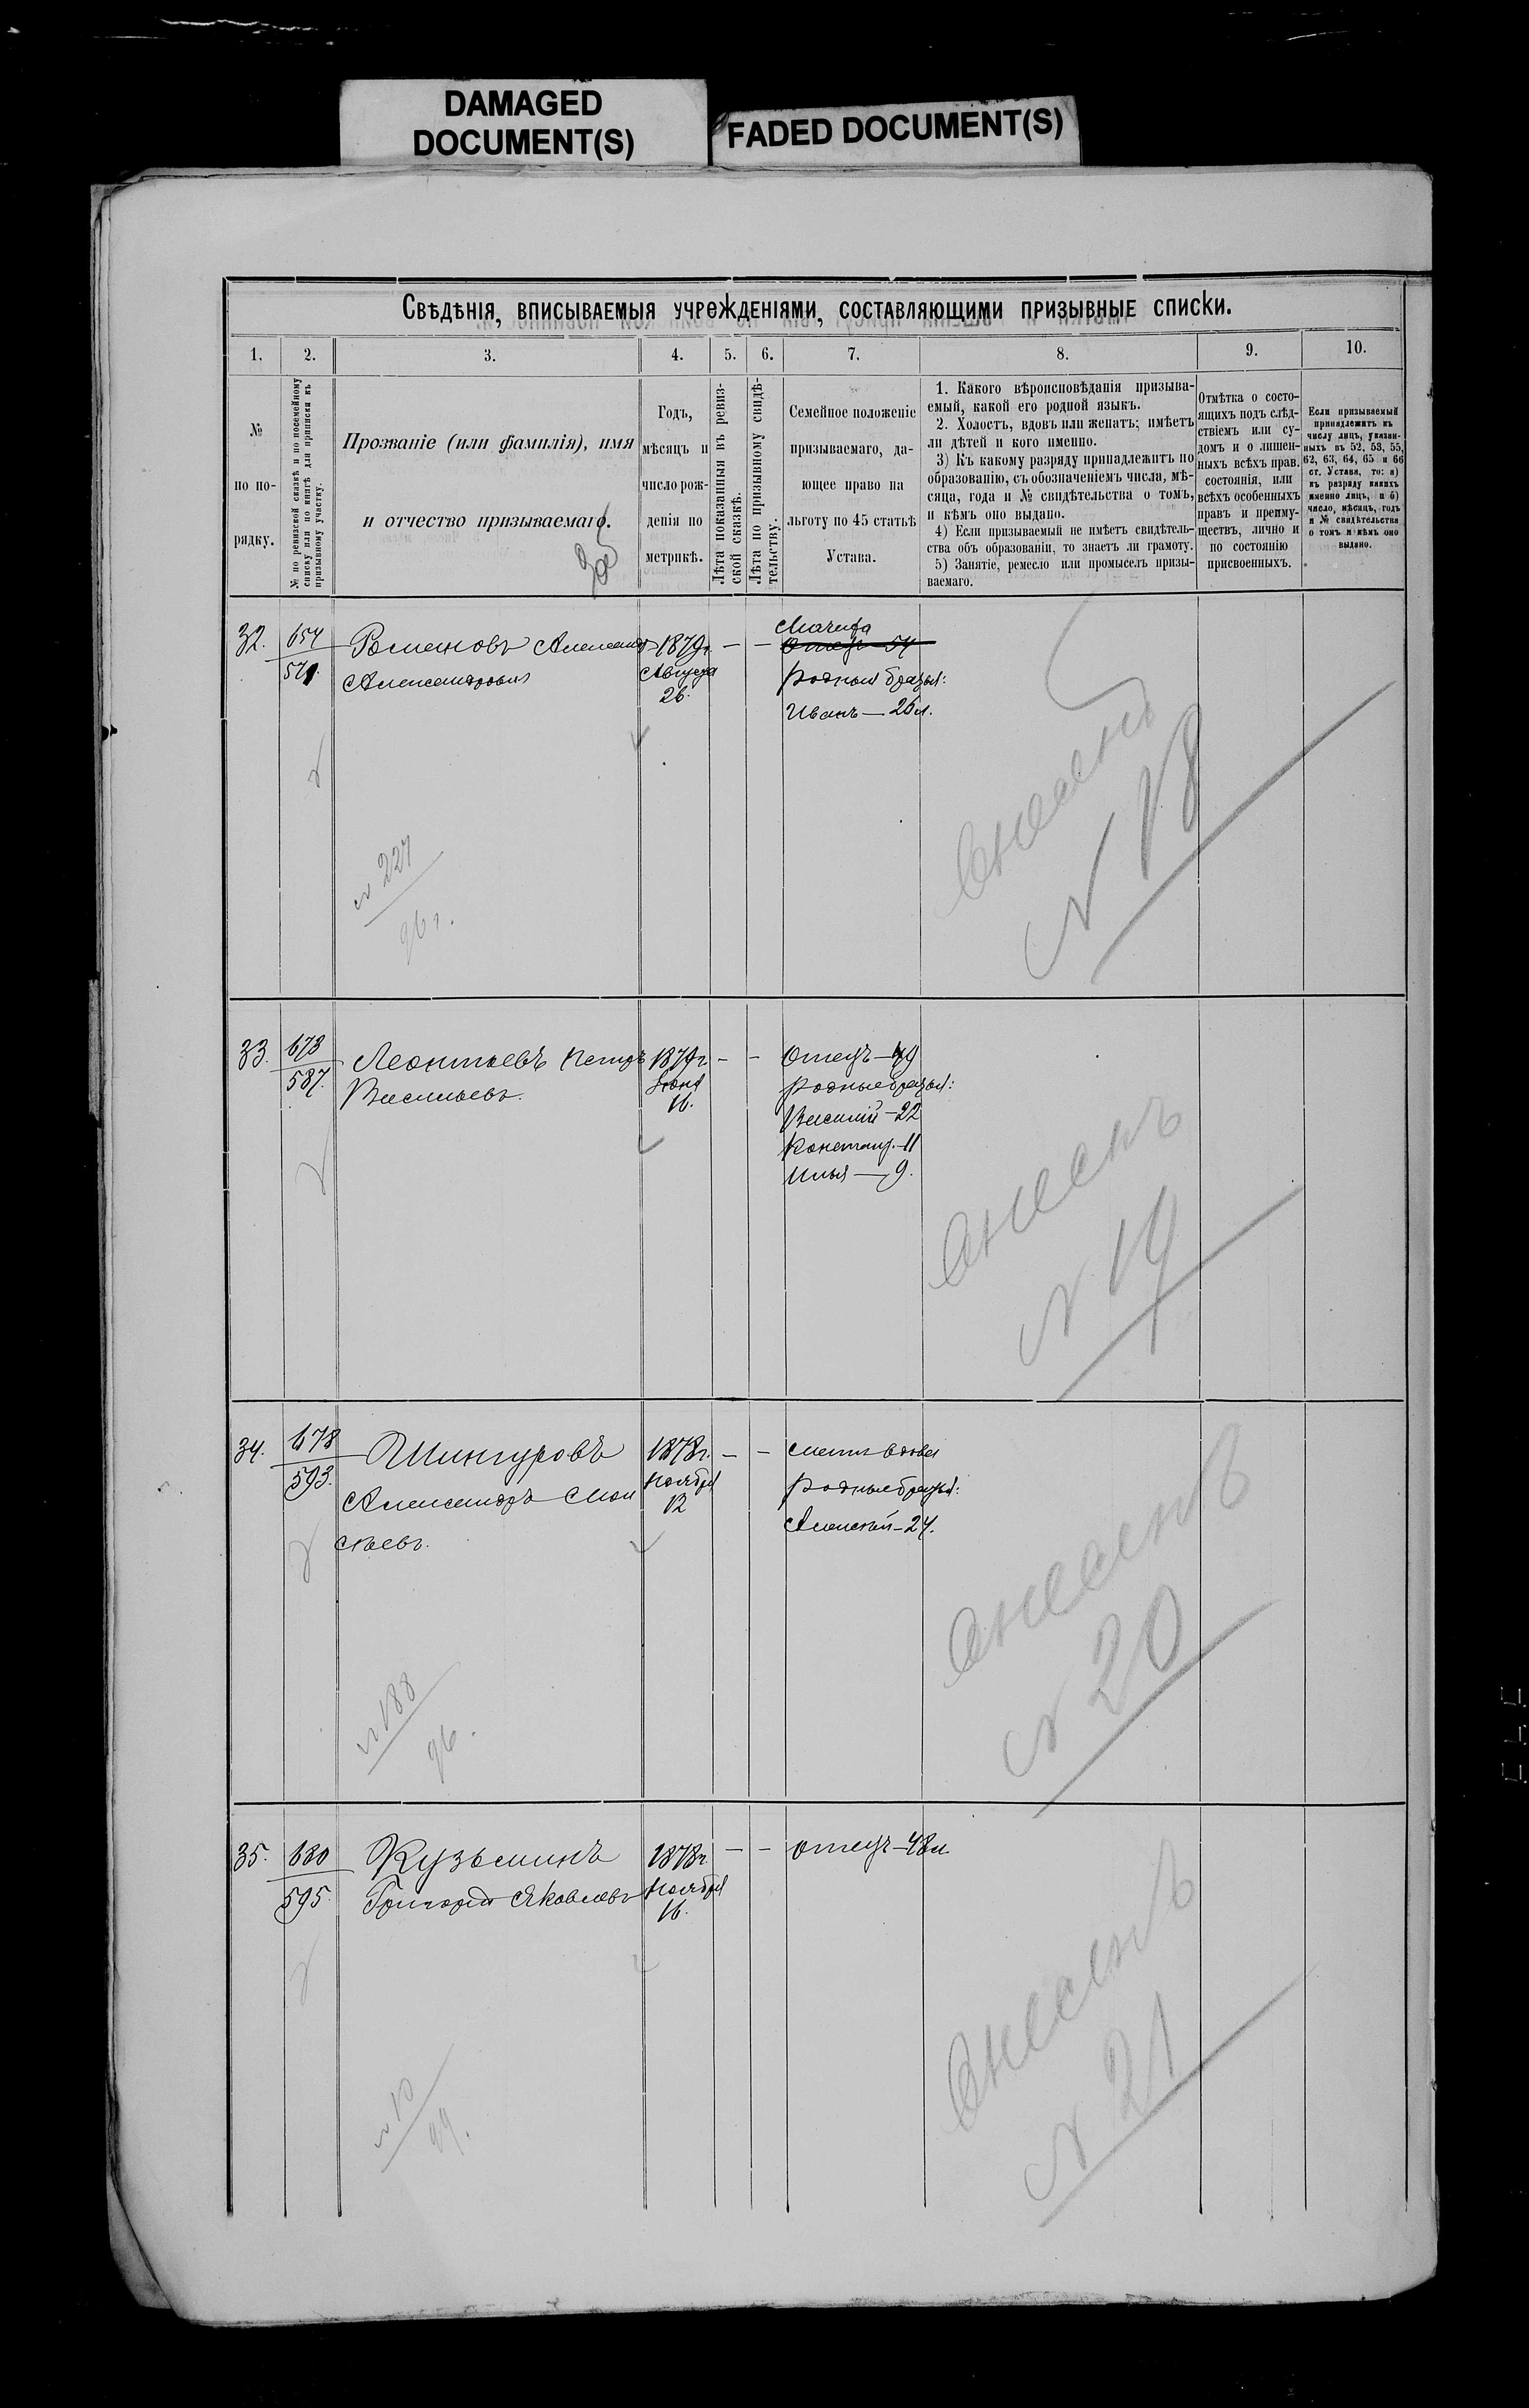 DAMAGED
DOCUMENT(S)
FADED DOCUMENT(S)
Свѣдѣнія, вписываемыя учрежденіями, составляющими призывные списки.
1. 2. 3. 4. 5. 6. 7. 8. 9. 10.
№
по по-
рядку.
№ по ревизской сказкѣ и по посемейному
списку или по книгѣ для приписки къ
призывному участку.
Прозваніе (или фамилія), имя
и отчество призываемаго.
Годъ,
мѣсяцъ и
число рож-
денія по
метрикѣ.
Лѣта показанныя въ ревиз-
ской сказкѣ.
Лѣта по призывному свидѣ-
тельству.
Семейное положеніе
призываемаго, да-
ющее право на
льготу по 45 статьѣ
Устава.
1. Какого вѣроисповѣданія призыва-
емый, какой его родной языкъ.
2. Холостъ, вдовъ или женатъ; имѣетъ
ли дѣтей и кого именно.
3) Къ какому разряду принадлежитъ по
образованію, съ обозначеніемъ числа, мѣ-
сяца, года и № свидѣтельства о томъ,
и кѣмъ оно выдано.
4) Если призываемый не имѣетъ свидѣтель-
ства объ образованіи, то знаетъ ли грамоту.
5) Занятіе, ремесло или промыселъ призы-
ваемаго.
Отмѣтка о состо-
ящихъ подъ слѣд-
ствіемъ или су-
домъ и о лишен-
ныхъ всѣхъ прав.
состоянія, или
всѣхъ особенныхъ
правъ и преиму-
ществъ, лично и
по состоянію
присвоенныхъ.
Если призываемый
принадлежитъ къ
числу лицъ, указан-
ныхъ въ 52, 53, 55,
62, 63, 64, 65 и 66
ст. Устава, то: а)
къ разряду какихъ
именно лицъ, и б)
число, мѣсяцъ, годъ
и № свидѣтельства
о томъ и кѣмъ оно
выдано.
32. 654 Романовъ Александръ 1879г. — —
571. Александровъ Августа
26.
Отецъ 54
Родныя братья:
Иванъ — 26л.
Внесенъ
N 18
N 227
96 г.
33. 673 Леонтьевъ Петръ 1879г. — — Отецъ — 49
587. Васильевъ. Іюня Родные братья:
16. Василій — 22
Констант. — 11
Илья — 9.
Внесенъ
N 19
34. 678 Шингуровъ 1878г. — — мать вдова
593. Александръ Мои Ноября Родные братья:
12 Алексѣй — 24.
сѣевъ.
Внесенъ
N 20
N 188
96.
35. 680 Кузьминъ 1878г. — — отецъ — 48л.
595. Григорій Яковлевъ Ноября
16.
Внесенъ
N 21
N 10
99.